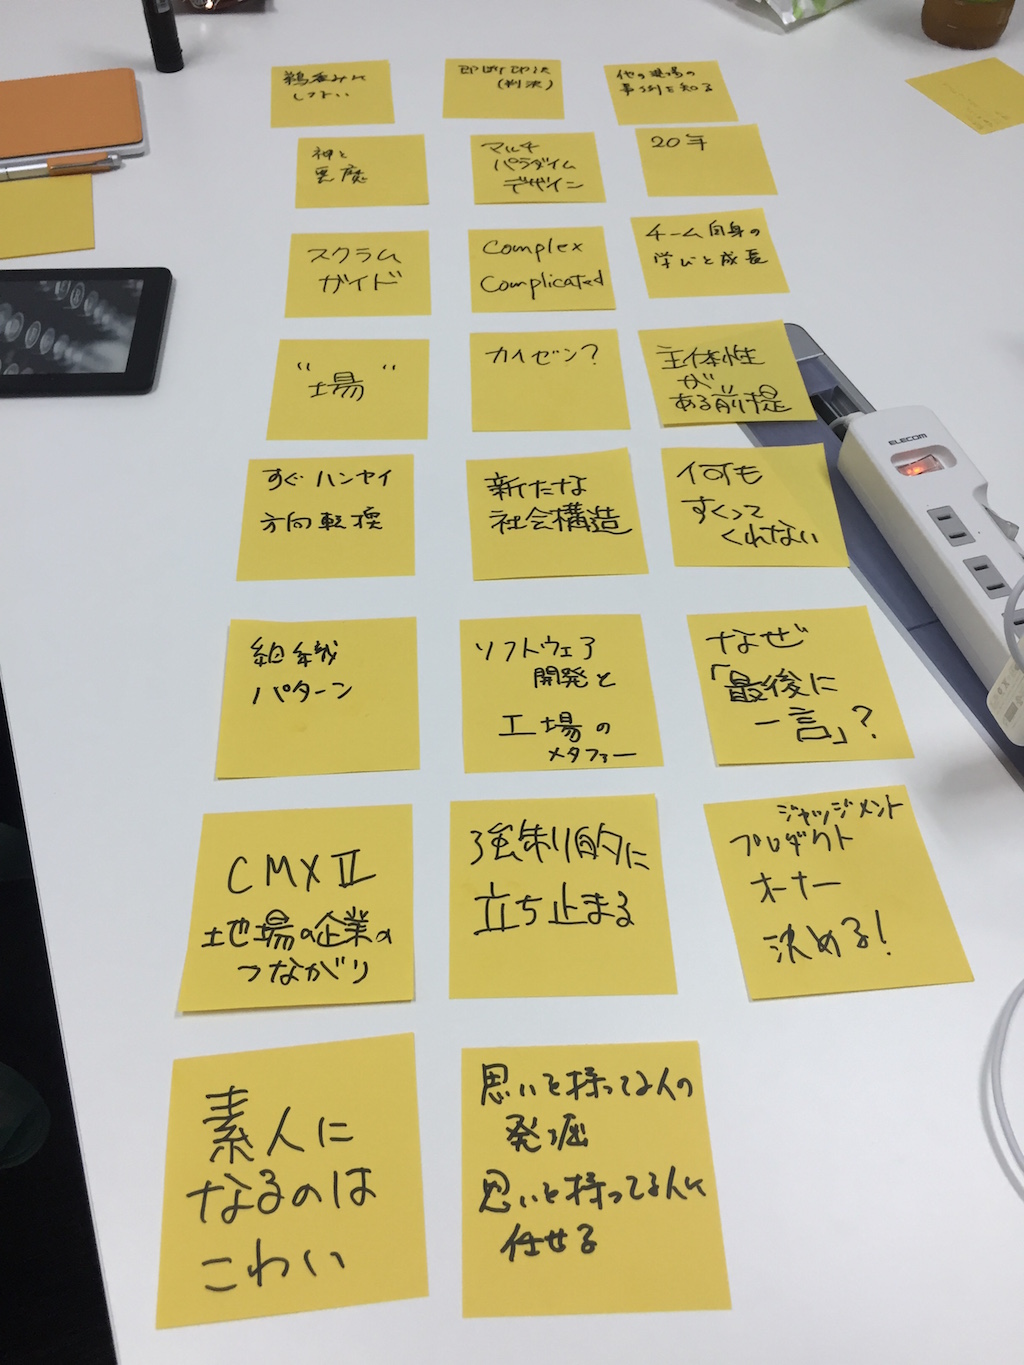 鵜呑みに
しない
即断即決
(判決)
他の現場の
事例を知る
神と
悪魔
マルチ
パラダイム
デザイン
20年
スクラム
ガイド
Complex
Complicated
チーム自身の
学びと成長
"場"
カイゼン?
主体性
が
ある前提
すぐハンセイ
方向転換
新たな
社会構造
何も
すくって
くれない
ELECOM
組織
パターン
ソフトウェア
開発と
工場の
メタファー
なぜ
「最後に
一言」?
CMXⅡ
地場の企業の
つながり
強制的に
立ち止まる
ジャッジメント
プロダクト
オーナー
決める!
素人に
なるのは
こわい
思いを持ってる人の
発掘
思いを持ってる人に
任せる